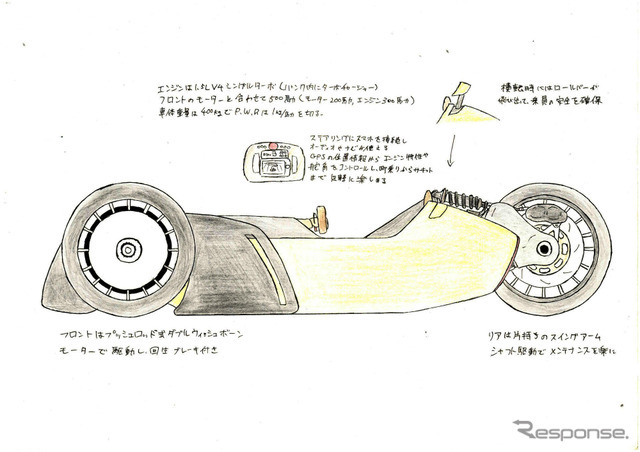 エンジンは1.5L V4 シングルターボ (バンク内にターボチャージャー)
フロントのモーターと合わせて500馬力 (モーター200馬力, エンジン300馬力)
車体重量は400kgでP.W.Rは1kg/馬力を切る。
横転時にはロールバーが
飛び出て、乗員の安全を確保
ステアリングにスマホを接続し
オーディオやナビが使える
GPSの位置情報からエンジン特性や
舵角をコントロールし、町乗りからサーキット
まで気軽に楽しめる
フロントはプッシュロッド式ダブルウィッシュボーン
モーターで駆動し、回生ブレーキ付き
リアは片持ちのスイングアーム
シャフト駆動でメンテナンスを楽に
Response.